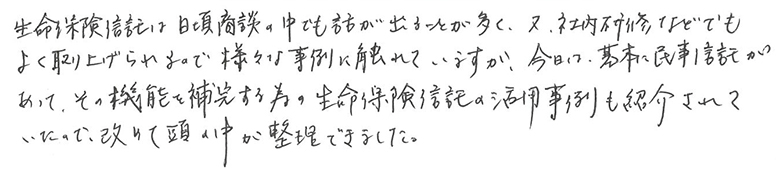 生命保険信託は日頃商談の中でも話が出ることが多く、又、社内研修などでも
よく取り上げられるので様々な事例に触れていますが、今日は、基本に民事信託が
あって、その機能を補完する為の生命保険信託の活用事例も紹介されて
いたので、改めて頭の中が整理できました。